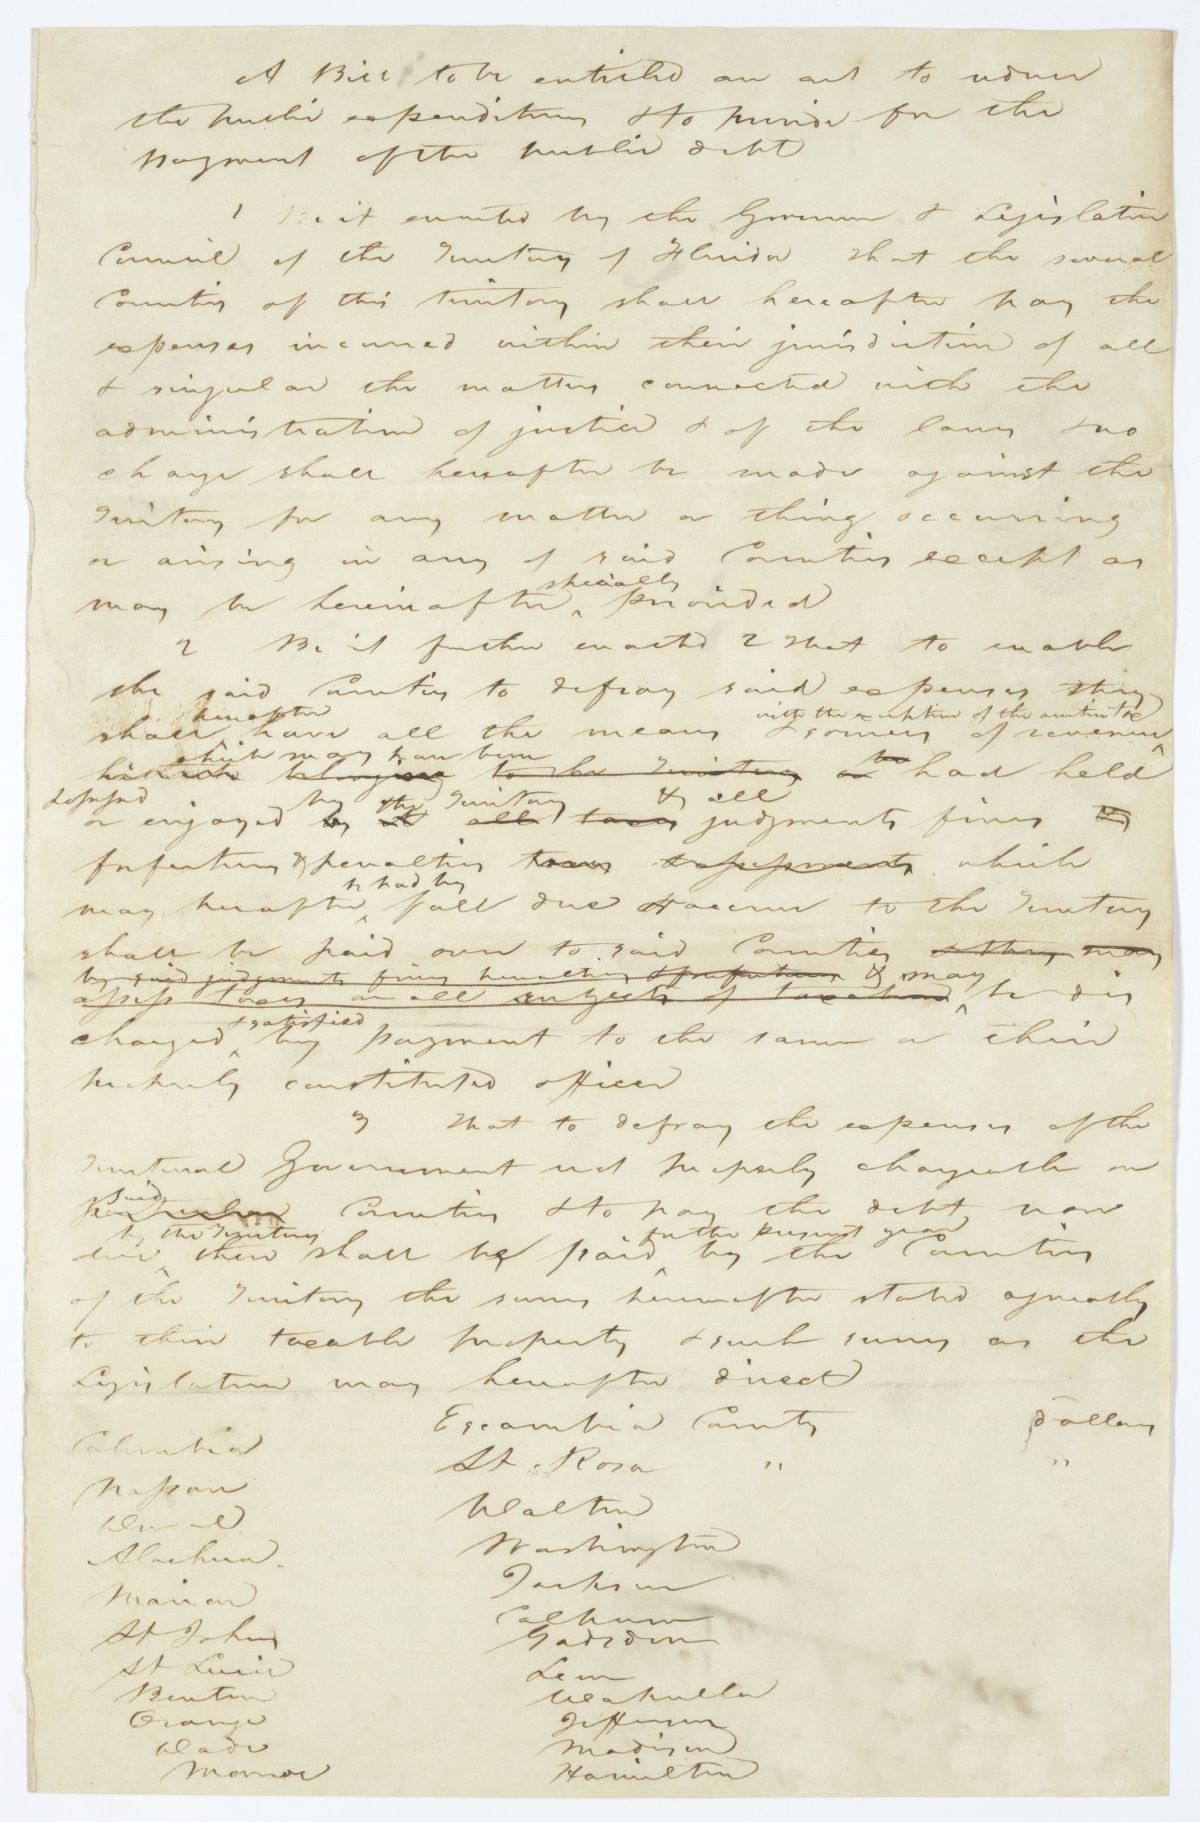 A Bill to be entitled an act to reduce
the public expenditures & to provide for the
payment of the public debt
1 Be it enacted by the Governor & Legislative
Council of the Territory of Florida That the several
Counties of this Territory shall hereafter pay the
expenses incurred within their jurisdiction of all
& singular the matters connected with the
administration of justice & of the laws & no
charge shall hereafter be made against the
Territory for any matter or thing occurring
or arising in any of said Counties except as
may be hereinafter specially provided
2 Be it further enacted 2 That to enable
the said Counties to defray said expenses they
shall hereafter have all the means & sources of revenue
with the exception of the
which may have been
to the Territory or had held
or enjoyed by the Territory & all judgments fines &
forfeitures & penalties taxes & assessments which
may hereafter be had by fall due & accrue to the Territory
shall be paid over to said Counties & they may
by said judgments fines penalties & forfeitures & may
assess taxes on all subjects of taxation be dis
charged & satisfied by payment to the same or their
properly constituted officer
3 That to defray the expenses of the
Territorial Government not properly chargeable on
said Counties & to pay the debt now
due by the Territory there shall be paid for the present year by the Counties
of the Territory the sums hereinafter stated agreeably
to their taxable property & such sums as the
Legislature may hereafter direct
Escambia County dollars
St. Rosa " "
Walton
Washington
Jackson
Calhoun
Gadsden
Leon
Wakulla
Jefferson
Madison
Hamilton
Columbia
Nassau
Duval
Alachua
Marion
St Johns
St Lucie
Benton
Orange
Dade
Monroe